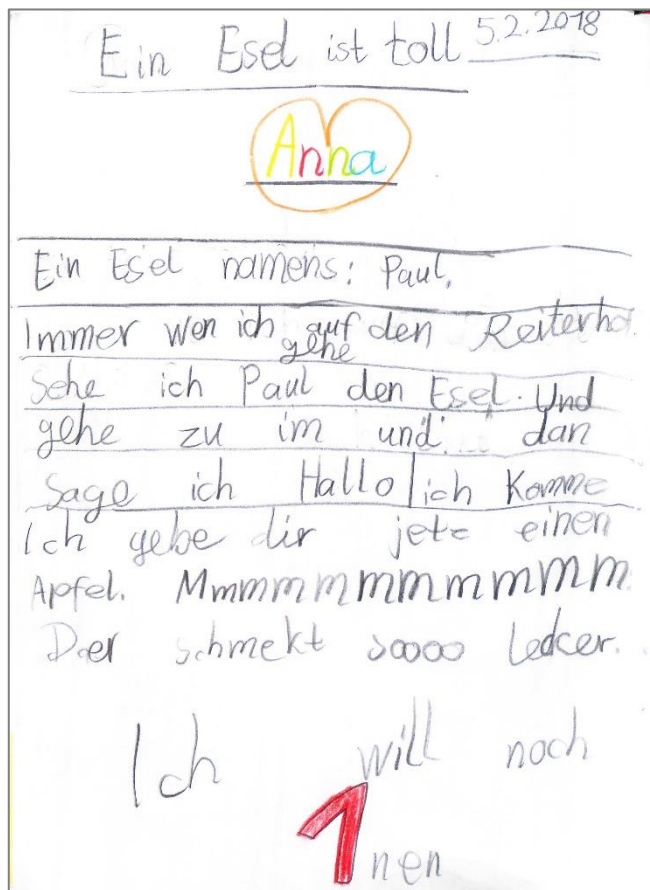 Ein Esel ist toll 5.2.2018
Anna
Ein Esel namens: Paul.
Immer wen ich auf den Reiterhof
gehe
Sehe ich Paul den Esel. Und
gehe zu im und dan
sage ich Hallo ich Komme
Ich gebe dir jetz einen
Apfel. Mmmmmmmmmmm
Der schmekt soooo lecker.
Ich will noch
1nen